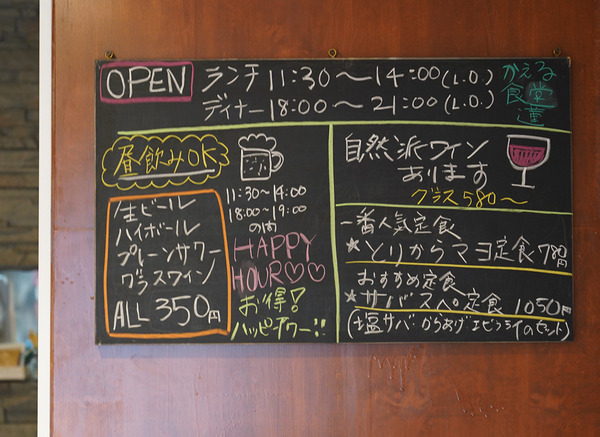 OPEN
ランチ 11:30～14:00(L.O.)
ディナー 18:00～21:00(L.O.)
かえる
食堂
蓮
昼飲みOK
生ビール
ハイボール
プレーンサワー
グラスワイン
ALL 350円
11:30～14:00
18:00～19:00
の内
HAPPY
HOUR♡♡
お得!
ハッピーアワー!!
自然派ワイン
あります
グラス580～
一番人気定食
★とりからマヨ定食 780円
おすすめ定食
★サバスペ定食 1050円
(塩サバ からあげ エビフライのセット)